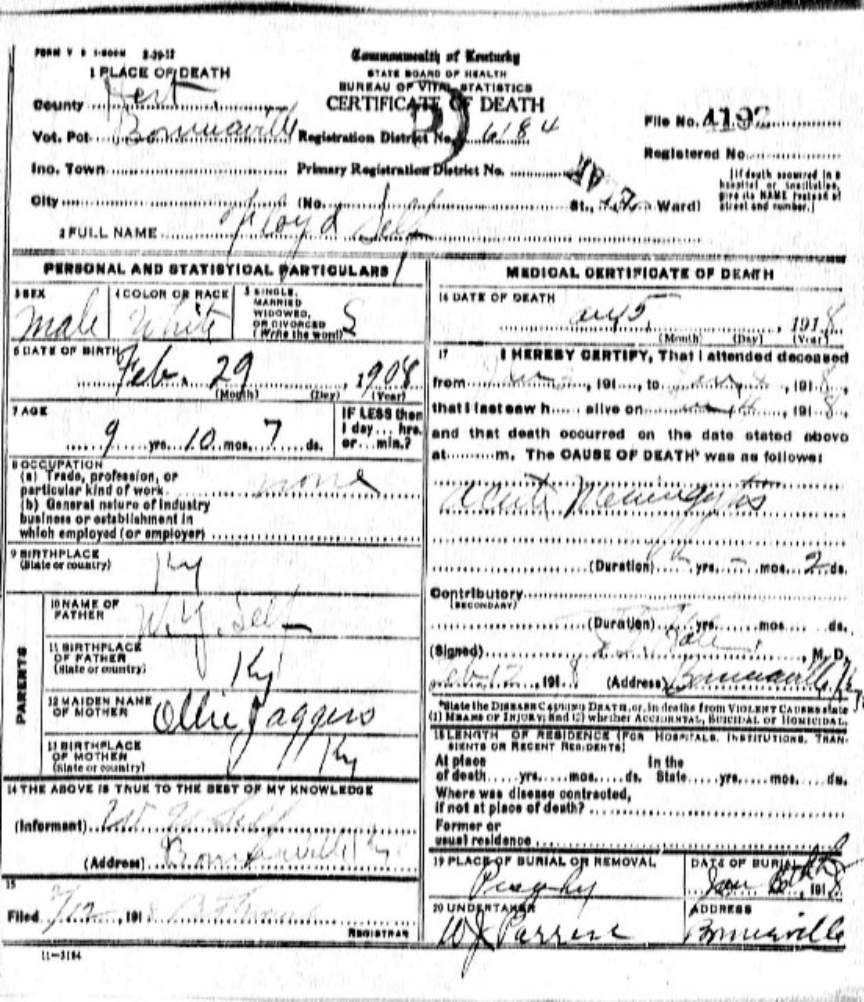 FORM V S 1-500M 2-29-12
Commonwealth of Kentucky
STATE BOARD OF HEALTH
BUREAU OF VITAL STATISTICS
CERTIFICATE OF DEATH
1 PLACE OF DEATH
County Hart
Vot. Pct. Bonnieville Registration District No. 6184
File No. 4192
Registered No.
Inc. Town Primary Registration District No.
[If death occurred in a hospital or institution, give its NAME instead of street and number.]
City (No. St., Ward)
2 FULL NAME Floyd Self
PERSONAL AND STATISTICAL PARTICULARS
3 SEX Male
4 COLOR OR RACE White
5 SINGLE, MARRIED WIDOWED, OR DIVORCED (Write the word) S
6 DATE OF BIRTH Feb. 29, 1908
(Month) (Day) (Year)
7 AGE 9 yrs. 10 mos. 7 ds.
IF LESS than 1 day... hrs. or... min.?
8 OCCUPATION
(a) Trade, profession, or
particular kind of work none
(b) General nature of industry
business or establishment in
which employed (or employer)
9 BIRTHPLACE
(State or country) Ky
PARENTS
10 NAME OF FATHER W. Y. Self
11 BIRTHPLACE OF FATHER (State or country) Ky
12 MAIDEN NAME OF MOTHER Ollie Jaggers
13 BIRTHPLACE OF MOTHER (State or country) Ky
14 THE ABOVE IS TRUE TO THE BEST OF MY KNOWLEDGE
(Informant) Self
(Address) Bonnieville Ky
15
Filed 2/12, 1918
REGISTRAR
11-3184
MEDICAL CERTIFICATE OF DEATH
16 DATE OF DEATH
5, 1918
(Month) (Day) (Year)
17 I HEREBY CERTIFY, That I attended deceased
from , 191 , to , 1918,
that I last saw h alive on , 1918,
and that death occurred on the date stated above
at m. The CAUSE OF DEATH* was as follows:
Acute
(Duration) yrs. mos. 2 ds.
Contributory
(SECONDARY)
(Duration) yrs. mos. ds.
(Signed) , M. D.
Feb 12, 1918 (Address) Bonnieville Ky
*State the DISEASE CAUSING DEATH, or, in deaths from VIOLENT CAUSES state
(1) MEANS OF INJURY; and (2) whether ACCIDENTAL, SUICIDAL OR HOMICIDAL.
18 LENGTH OF RESIDENCE (FOR HOSPITALS, INSTITUTIONS, TRANSIENTS OR RECENT RESIDENTS)
At place of death yrs. mos. ds. In the State yrs. mos. ds.
Where was disease contracted,
if not at place of death?
Former or
usual residence
19 PLACE OF BURIAL OR REMOVAL
DATE OF BURIAL
Jan , 1918
20 UNDERTAKER
ADDRESS
Bonnieville